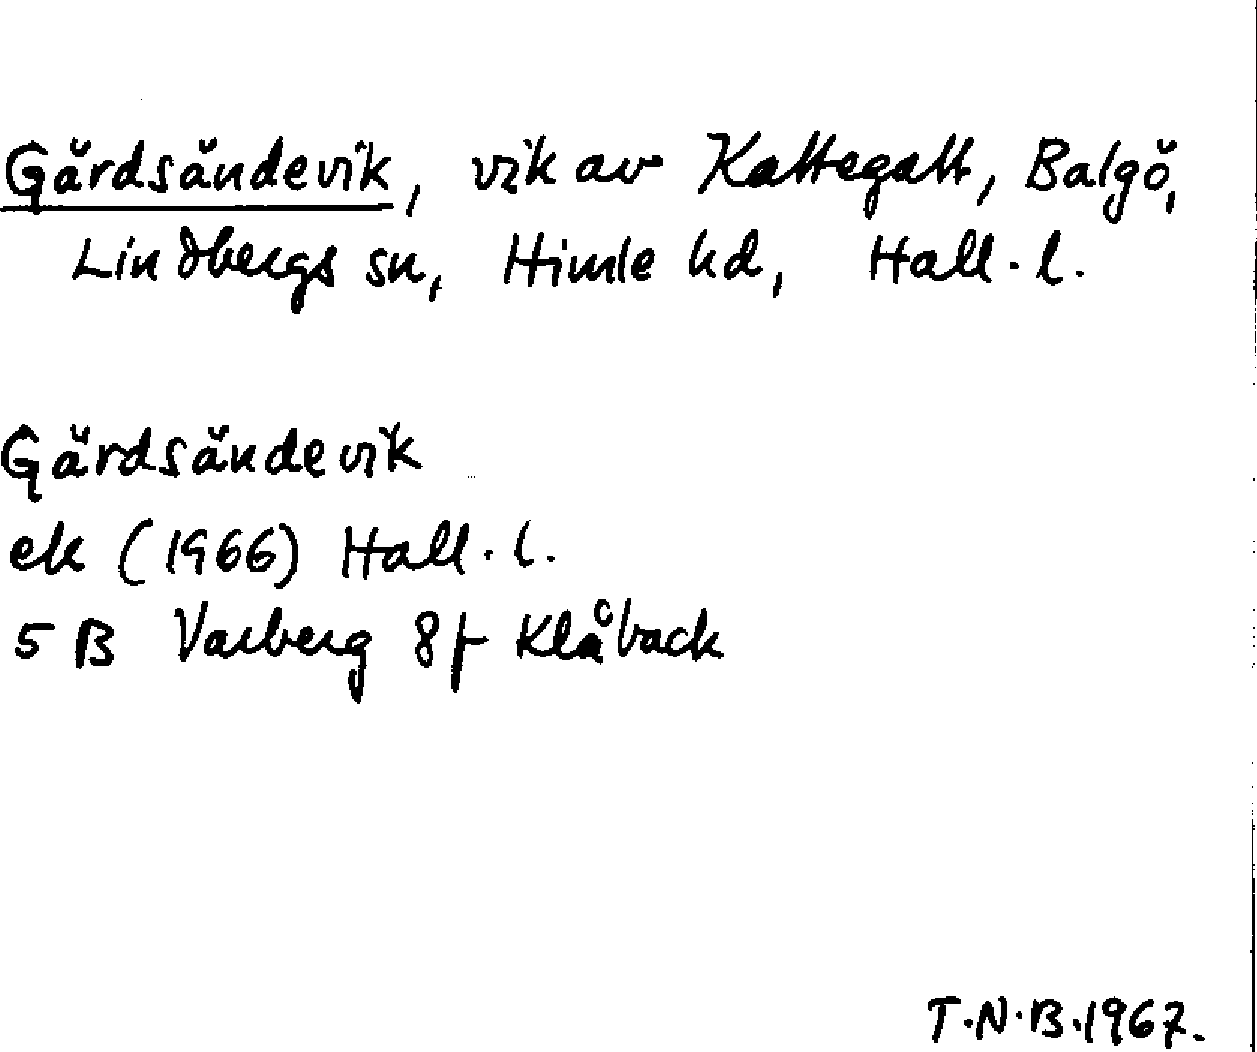 Gärdsändevik, vik av Kattegatt, Balgö,
Lindbergs sn, Himle hd, Hall. l.
Gärdsändevik
ek (1966) Hall. l.
5 B Varberg 8f Klåback
T.N.B. 1967.